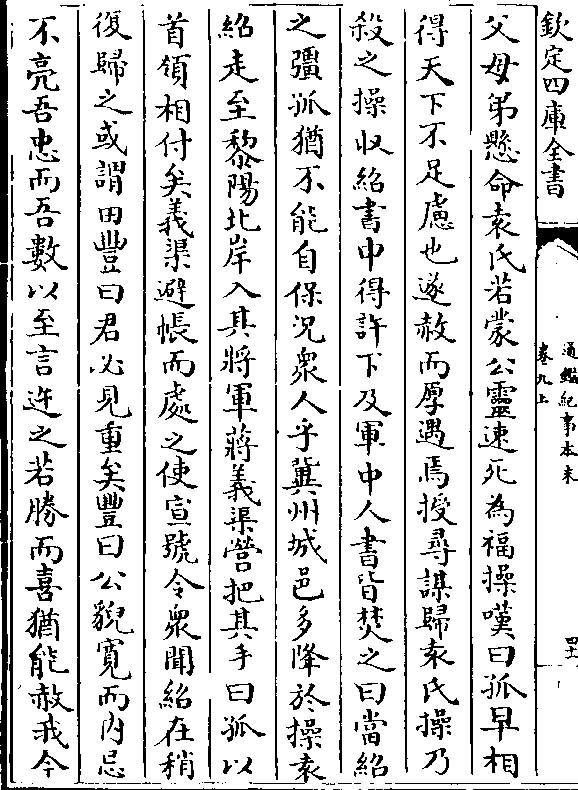 欽定四庫全書
通鑑紀事本末
卷九上
四十一
父母弟懸命袁氏若蒙公靈速死為福操嘆曰孤早相
得天下不足慮也遂赦而厚遇焉授尋謀歸袁氏操乃
殺之操收紹書中得許下及軍中人書皆焚之曰當紹
之彊孤猶不能自保況衆人乎冀州城邑多降於操袁
紹走至黎陽北岸入其將軍蔣義渠營把其手曰孤以
首領相付矣義渠避帳而處之使宣號令衆聞紹在稍
復歸之或謂田豐曰君必見重矣豐曰公貌寛而内忌
不亮吾忠而吾數以至言迕之若勝而喜猶能赦我今